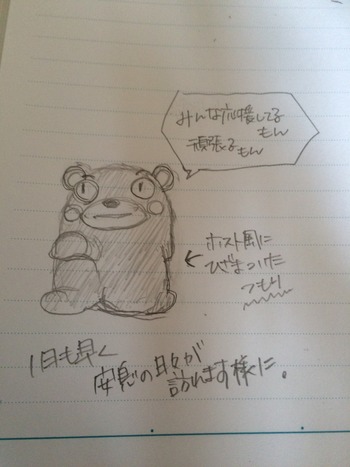 みんな応援してる
もん
頑張る
もん
ホスト風に
ひざまづけた
つもり
1日も早く
安息の日々が
訪れます様に。